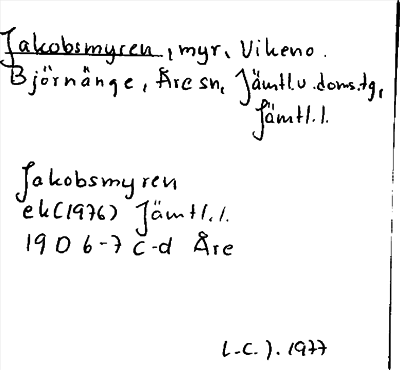 Jakobsmyren, myr, Vikeno.
Björnänge, Åre sn, Jämtl.v.doms.tg,
Jämtl.l.
Jakobsmyren
ek(1976) Jämtl.l.
19D 6-7 c-d Åre
L-C.J. 1977